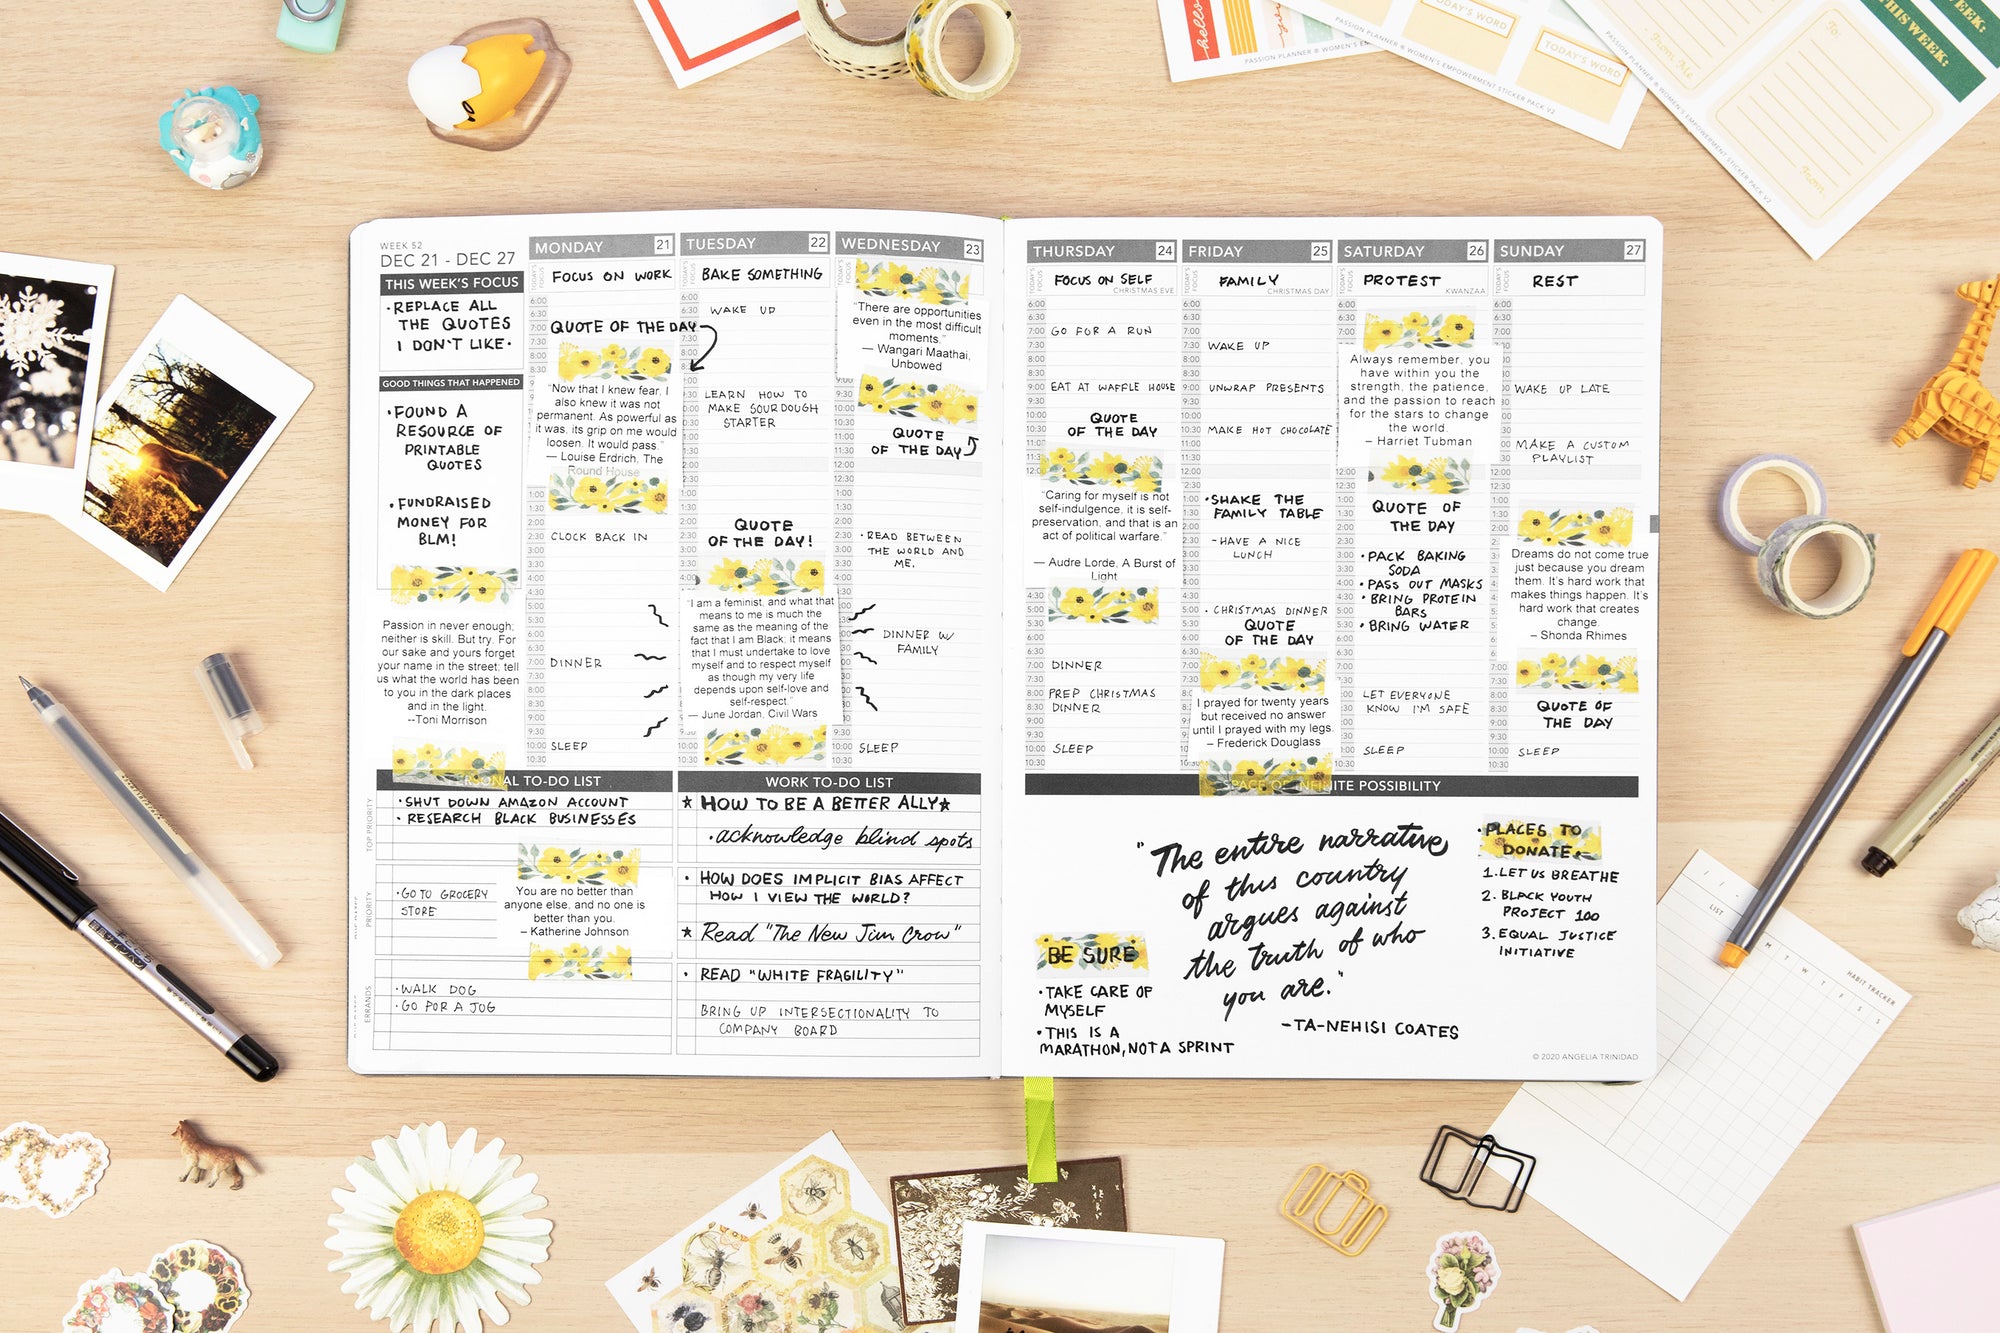 hello
PASSION PLANNER ® WOMEN'S EM
TODAY'S WORD
TODAY'S WORD
PASSION PLANNER ® WOMEN'S EMPOWERMENT STICKER PACK V2
PASSION PLANNER ® WOMEN'S EMPOWERMENT STICKER PACK V2
From Me
To:
From:
THIS WEEK:
WEEK:
WEEK 52
DEC 21 - DEC 27
THIS WEEK'S FOCUS
• REPLACE ALL
THE QUOTES
I DON'T LIKE.
GOOD THINGS THAT HAPPENED
• FOUND A
RESOURCE OF
PRINTABLE
QUOTES
• FUNDRAISED
MONEY FOR
BLM!
Passion in never enough;
neither is skill. But try. For
our sake and yours forget
your name in the street; tell
us what the world has been
to you in the dark places
and in the light.
--Toni Morrison
MONDAY 21
TODAY'S FOCUS
FOCUS ON WORK
QUOTE OF THE DAY
"Now that I knew fear, I
also knew it was not
permanent. As powerful as
it was, its grip on me would
loosen. It would pass."
— Louise Erdrich, The
Round House
CLOCK BACK IN
DINNER
SLEEP
TUESDAY 22
TODAY'S FOCUS
BAKE SOMETHING
WAKE UP
LEARN HOW TO
MAKE SOURDOUGH
STARTER
QUOTE
OF THE DAY!
"I am a feminist, and what that
means to me is much the
same as the meaning of the
fact that I am Black: it means
that I must undertake to love
myself and to respect myself
as though my very life
depends upon self-love and
self-respect."
— June Jordan, Civil Wars
WEDNESDAY 23
TODAY'S FOCUS
"There are opportunities
even in the most difficult
moments."
— Wangari Maathai,
Unbowed
QUOTE
OF THE DAY
• READ BETWEEN
THE WORLD AND
ME.
DINNER W/
FAMILY
SLEEP
THURSDAY 24
TODAY'S FOCUS
FOCUS ON SELF
CHRISTMAS EVE
GO FOR A RUN
EAT AT WAFFLE HOUSE
QUOTE
OF THE DAY
"Caring for myself is not
self-indulgence, it is self-
preservation, and that is an
act of political warfare."
— Audre Lorde, A Burst of
Light
DINNER
PREP CHRISTMAS
DINNER
SLEEP
FRIDAY 25
TODAY'S FOCUS
FAMILY
CHRISTMAS DAY
WAKE UP
UNWRAP PRESENTS
MAKE HOT CHOCOLATE
• SHAKE THE
FAMILY TABLE
- HAVE A NICE
LUNCH
• CHRISTMAS DINNER
QUOTE
OF THE DAY
I prayed for twenty years
but received no answer
until I prayed with my legs.
– Frederick Douglass
SATURDAY 26
TODAY'S FOCUS
PROTEST
KWANZAA
Always remember, you
have within you the
strength, the patience,
and the passion to reach
for the stars to change
the world.
– Harriet Tubman
QUOTE OF
THE DAY
• PACK BAKING
SODA
• PASS OUT MASKS
• BRING PROTEIN
BARS
• BRING WATER
LET EVERYONE
KNOW I'M SAFE
SLEEP
SUNDAY 27
TODAY'S FOCUS
REST
WAKE UP LATE
MAKE A CUSTOM
PLAYLIST
Dreams do not come true
just because you dream
them. It's hard work that
makes things happen. It's
hard work that creates
change.
– Shonda Rhimes
QUOTE OF
THE DAY
SLEEP
PERSONAL TO-DO LIST
TOP PRIORITY
• SHUT DOWN AMAZON ACCOUNT
• RESEARCH BLACK BUSINESSES
PRIORITY
• GO TO GROCERY
STORE
You are no better than
anyone else, and no one is
better than you.
– Katherine Johnson
ERRANDS
• WALK DOG
• GO FOR A JOG
WORK TO-DO LIST
★ HOW TO BE A BETTER ALLY★
• acknowledge blind spots
• HOW DOES IMPLICIT BIAS AFFECT
HOW I VIEW THE WORLD?
★ Read "The New Jim Crow"
• READ "WHITE FRAGILITY"
BRING UP INTERSECTIONALITY TO
COMPANY BOARD
SPACE OF INFINITE POSSIBILITY
BE SURE
• TAKE CARE OF
MYSELF
• THIS IS A
MARATHON, NOT A SPRINT
"The entire narrative
of this country
argues against
the truth of who
you are."
-TA-NEHISI COATES
• PLACES TO
DONATE
1. LET US BREATHE
2. BLACK YOUTH
PROJECT 100
3. EQUAL JUSTICE
INITIATIVE
© 2020 ANGELIA TRINIDAD
LIST
HABIT TRACKER
M T W T F S S